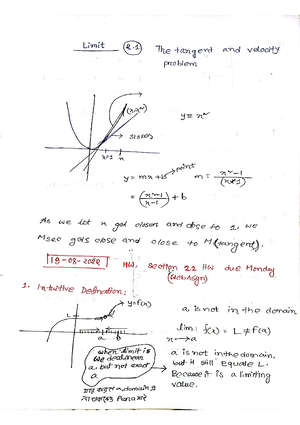 Limit 2.1 The tangent and velocity
problem
(x,x²)
y = x²
slopes
x=1 x
y = mx + b → point m = x²-1/(x-1)
= (x²-1/x-1) + b
As we let x gets closer and close to 1, we
Msec gets close and close to M(tangent).
19-08-2022 HW, section 2.2 HW due Monday
(WebAssign)
1. Intuitive Defination:
y=f(x)
a is not in the domain
L
lim f(x) = L ≠ f(a)
x→a
a b
when limit is
we deal near
a but not exact
a
a is not in the domain,
but it still equals L.
Because it is a limiting
value.